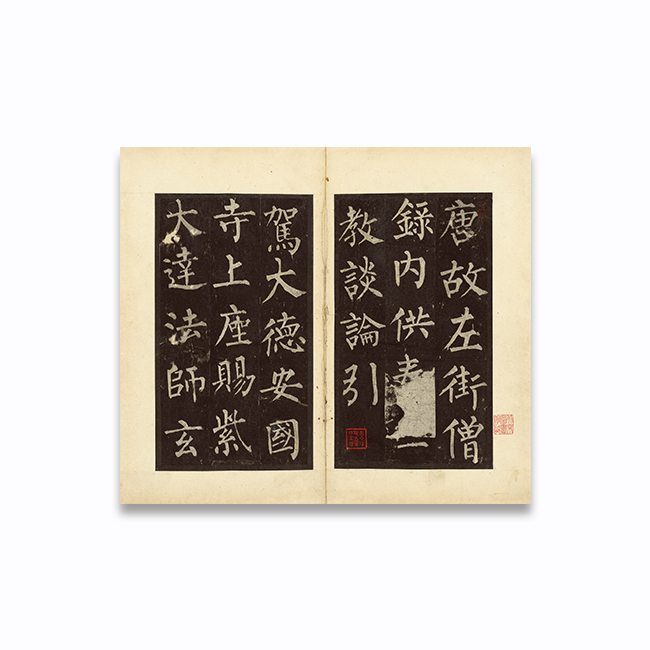 唐故左街僧
錄内供
教談論引
駕大德安國
寺上座賜紫
大達法師玄